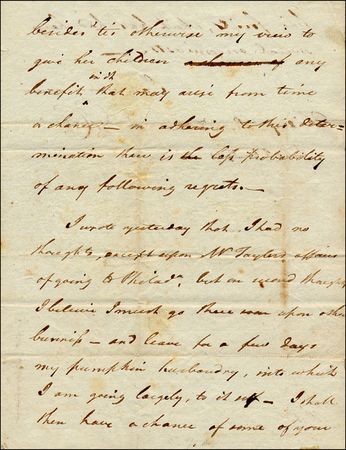 besides 'tis otherwise my view to
give her children a chance of any
with
benefit that may arise from time
& chance — in adhering to this deter-
mination there is the less probability
of any following regrets. —
I wrote yesterday that I had no
thoughts, except upon Mr Taylors affairs
of going to Philada, but on second thoughts
I believe I must go there soon upon other
business — and leave for a few days
my pumpkin husbandry, into which
I am going largely, to it self — I shall
then have a chance of some of your